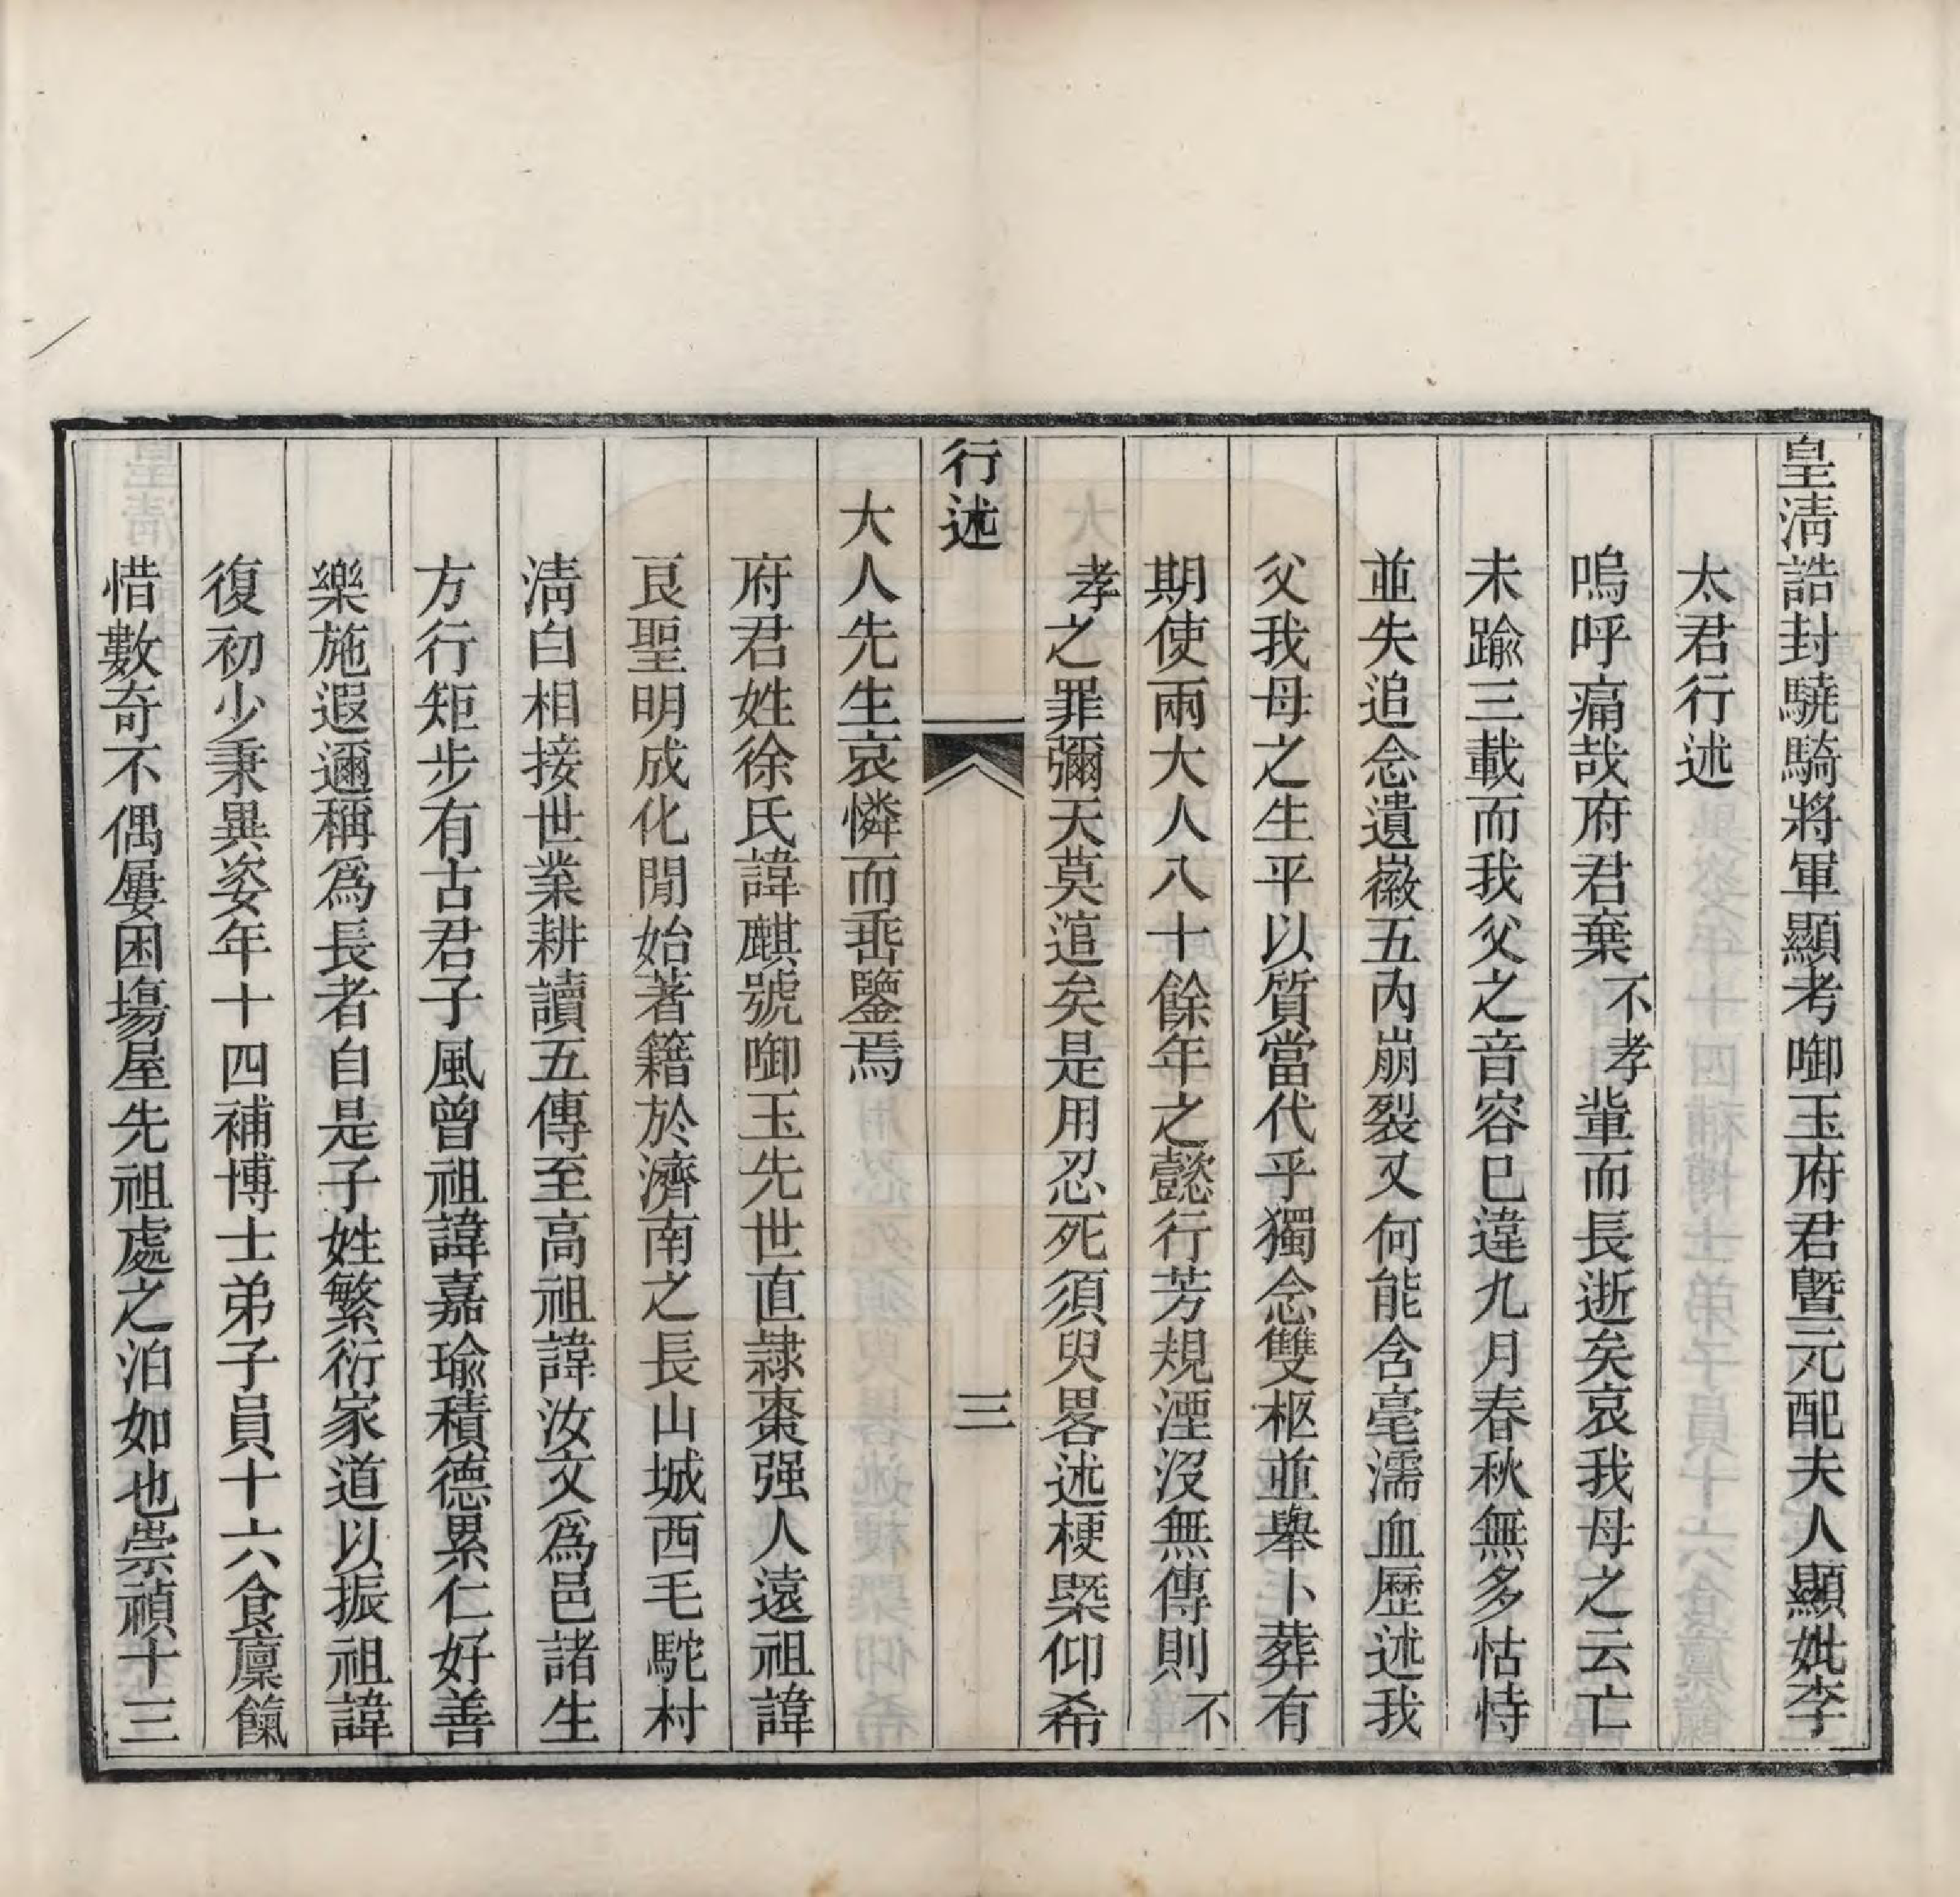 皇淸誥封驍騎將軍顯考啣玉府君曁元配夫人顯妣李
太君行述
嗚呼痛哉府君棄不孝輩而長逝矣哀我母之云亡
未踰三載而我父之音容已違九月春秋無多怙恃
並失追念遺徽五內崩裂又何能含毫濡血歷述我
父我母之生平以質當代乎獨念雙柩並舉卜葬有
期使兩大人八十餘年之懿行芳規湮沒無傳則不
孝之罪彌天莫逭矣是用忍死須臾畧述梗槩仰希
行述
三
大人先生哀憐而垂鑒焉
府君姓徐氏諱麒號啣玉先世直隸棗强人遠祖諱
艮聖明成化閒始著籍於濟南之長山城西毛駝村
淸白相接世業耕讀五傳至高祖諱汝文爲邑諸生
方行矩步有古君子風曾祖諱嘉瑜積德累仁好善
樂施遐邇稱爲長者自是子姓繁衍家道以振祖諱
復初少秉異姿年十四補博士弟子員十六食廩餼
惜數奇不偶屢困塲屋先祖處之泊如也崇禎十三